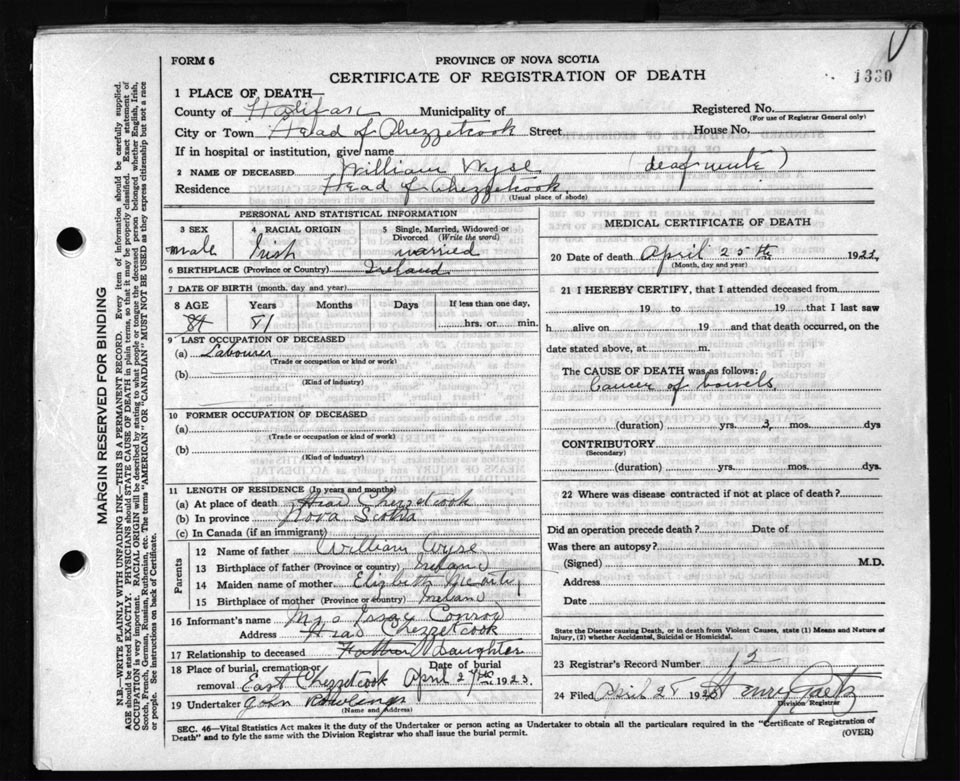 FORM 6
PROVINCE OF NOVA SCOTIA
CERTIFICATE OF REGISTRATION OF DEATH
1330
1 PLACE OF DEATH—
County of Halifax Municipality of Registered No.
(For use of Registrar General only)
City or Town Head of Chezzetcook Street House No.
If in hospital or institution, give name
2 NAME OF DECEASED William Wyse (deaf mute)
Residence Head of Chezzetcook
(Usual place of abode)
PERSONAL AND STATISTICAL INFORMATION
3 SEX 4 RACIAL ORIGIN 5 Single, Married, Widowed or Divorced (Write the word)
Male Irish married
6 BIRTHPLACE (Province or Country) Ireland
7 DATE OF BIRTH (month, day and year)
8 AGE Years Months Days If less than one day,
81 hrs. or min.
9 LAST OCCUPATION OF DECEASED
(a) Labourer
(Trade or occupation or kind or work)
(b)
(Kind of industry)
10 FORMER OCCUPATION OF DECEASED
(a)
(Trade or occupation or kind of work)
(b)
(Kind of industry)
11 LENGTH OF RESIDENCE (In years and months)
(a) At place of death Head Chezzetcook
(b) In province Nova Scotia
(c) In Canada (if an immigrant)
Parents
12 Name of father William Wyse
13 Birthplace of father (Province or country) Ireland
14 Maiden name of mother Elizabeth
15 Birthplace of mother (Province or country) Ireland
16 Informant's name Mrs Issac Conrod
Address Head Chezzetcook
17 Relationship to deceased Daughter
18 Place of burial, cremation or removal East Chezzetcook Date of burial April 27th 1923.
19 Undertaker John Rawlings
(Name and Address)
MEDICAL CERTIFICATE OF DEATH
20 Date of death April 25th 192
(Month, day and year)
21 I HEREBY CERTIFY, that I attended deceased from
19 to 19 that I last saw
h alive on 19 and that death occurred, on the
date stated above, at m.
The CAUSE OF DEATH was as follows:
Cancer of bowels
(duration) yrs. 3 mos. dys
CONTRIBUTORY
(Secondary)
(duration) yrs. mos. dys.
22 Where was disease contracted if not at place of death?
Did an operation precede death? Date of
Was there an autopsy?
(Signed) M.D.
Address
Date
State the Disease causing Death, or in death from Violent Causes, state (1) Means and Nature of
Injury, (2) whether Accidental, Suicidal or Homicidal.
23 Registrar's Record Number 12
24 Filed April 28 192 Henry Gaetz
Division Registrar
SEC. 46—Vital Statistics Act makes it the duty of the Undertaker or person acting as Undertaker to obtain all the particulars required in the "Certificate of Registration of
Death" and to fyle the same with the Division Registrar who shall issue the burial permit. (OVER)
MARGIN RESERVED FOR BINDING
N.B.—WRITE PLAINLY WITH UNFADING INK—THIS IS A PERMANENT RECORD. Every item of information should be carefully supplied.
AGE should be stated EXACTLY. PHYSICIANS should STATE CAUSE OF DEATH in plain terms, so that it may be properly classified. Exact statement of
OCCUPATION is very important. RACIAL ORIGIN will be described by stating to what people or tongue the deceased person belonged whether English, Irish,
Scotch, French, German, Russian, Ruthenian, etc. The terms "AMERICAN" or "CANADIAN" MUST NOT BE USED as they express citizenship but not a race
or people. See instructions on back of Certificate.